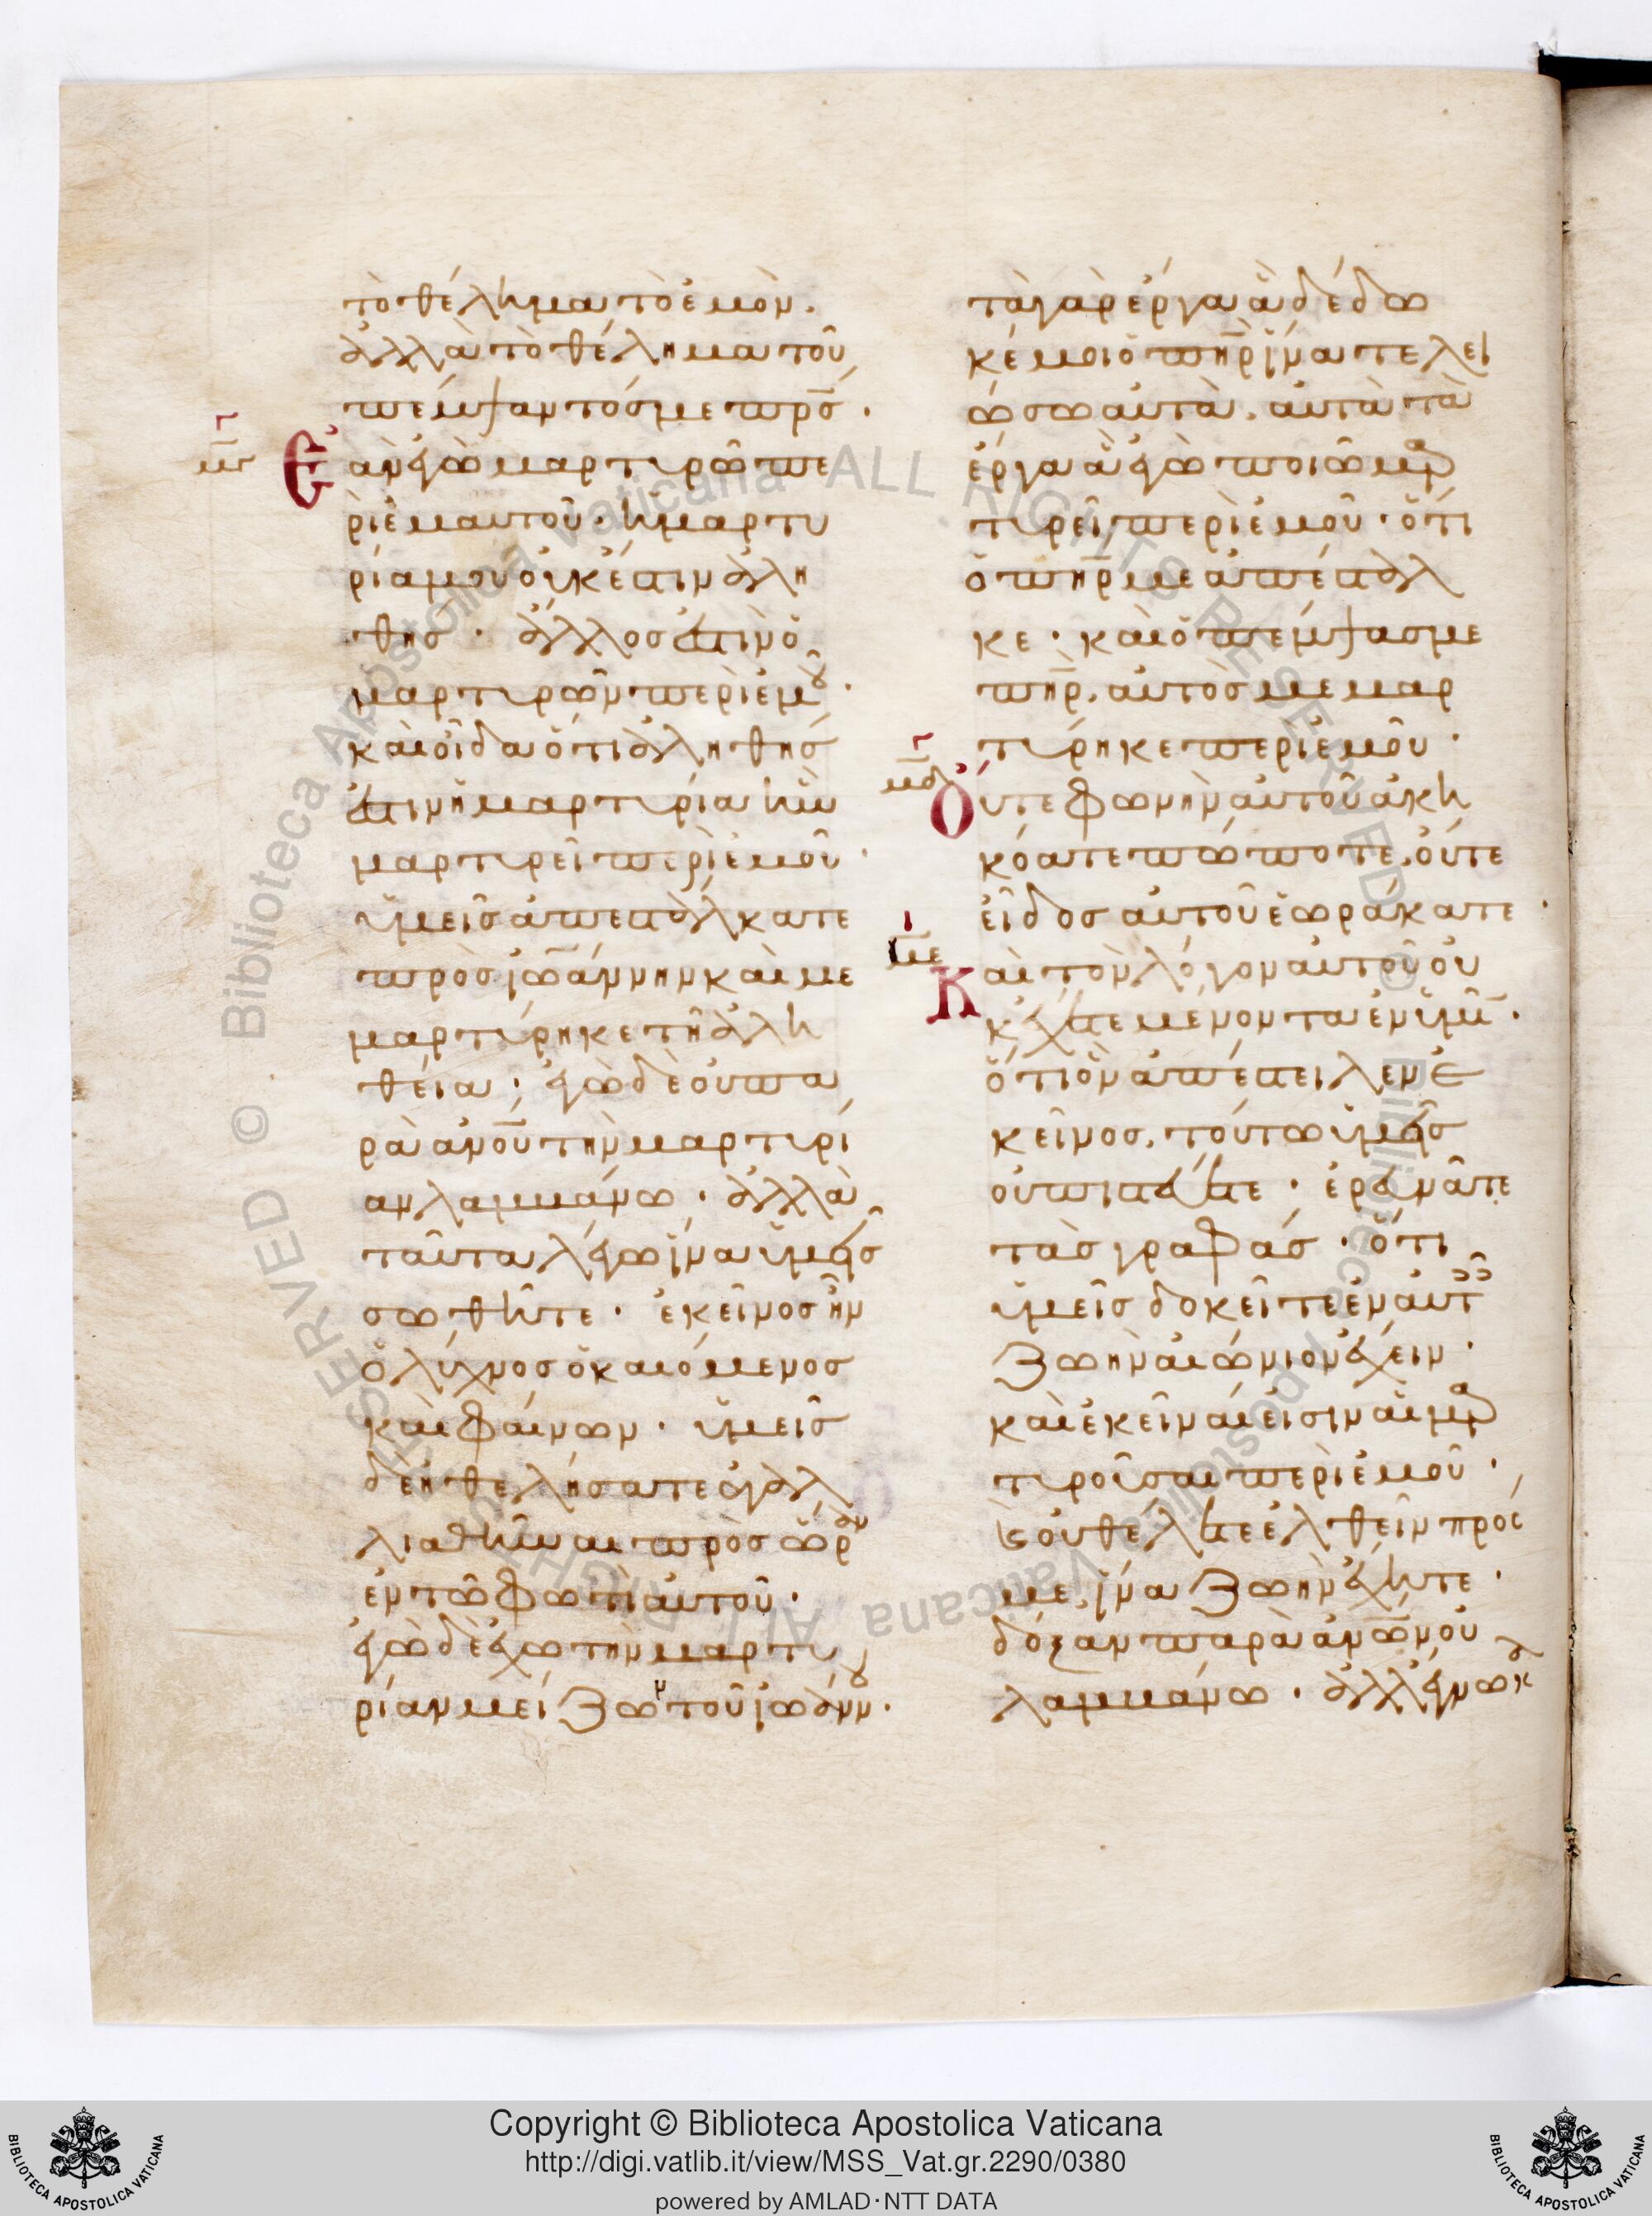 τὸ θέλημα τὸ ἐμὸν.
ἀλλὰ τὸ θέλημα τοῦ
πέμψαντός με πρ̅σ.
μγ Ἐὰν ἐγὼ μαρτυρῶ πε
ρὶ ἐμαυτοῦ. ἡ μαρτυ
ρία μου οὐκ ἔστιν ἀλη
θησ. ἄλλοσ ἐστιν ὁ
μαρτυρῶν περὶ ἐμοῦ.
καὶ οἶδα ὅτι ἀληθησ
ἐστιν ἡ μαρτυρία ἣν
μαρτυρεῖ περὶ ἐμοῦ.
ὑμεῖσ ἀπεστάλκατε
πρὸσ ἰω̅άννην καὶ με
μαρτύρηκε τῆ ἀλη
θεία. ἐγὼ δὲ οὐ πα
ρὰ αν̅ου τὴν μαρτυρί
αν λαμβάνω. ἀλλὰ
ταῦτα λέγω ἵνα ὑμεῖσ
σωθῆτε. ἐκεῖνοσ ἦν
ὁ λύχνοσ ὁ καιόμενοσ
καὶ φαίνων. ὑμεῖσ
δὲ ἠθελήσατε ἀγαλ
λιαθῆναι πρὸσ ὥραν
ἐν τῶ φωτὶ αὐτοῦ.
ἐγὼ δὲ ἔχω τὴν μαρτυ
ρίαν μείζων τοῦ ἰωάννου.
τὰ γὰρ ἔργα ἃ δέδω
κέ μοι ὁ πη̅ρ ἵνα τελει
ώσω αὐτὰ. αὐτὰ τὰ
ἔργα ἃ ἐγὼ ποιῶ μαρ
τυρεῖ περὶ ἐμοῦ. ὅτι
ὁ πη̅ρ με ἀπέσταλ
κε. καὶ ὁ πέμψασ με
πη̅ρ. αὐτὸσ μεμαρ
τύρηκε περὶ ἐμοῦ.
μδ Οὔτε φωνὴν αὐτοῦ ἀκη
κόατε πώποτε. οὔτε
εἶδοσ αὐτοῦ ἑωράκατε.
με Καὶ τὸν λόγον αὐτοῦ οὐ
κ ἔχετε μένοντα ἐν ὑμῖν.
ὅτι ὃν ἀπέστειλεν ἐ
κεῖνοσ. τούτω ὑμεῖσ
οὐ πιστεύετε. ἐρευνᾶτε
τὰσ γραφάσ. ὅτι
ὑμεῖσ δοκεῖτε ἐν αὐταῖσ
ζωὴν αἰώνιον ἔχειν.
καὶ ἐκεῖναί εἰσιν αἱ μαρ
τυροῦσαι περὶ ἐμοῦ.
καὶ οὐ θέλετε ἐλθεῖν πρόσ
με. ἵνα ζωὴν ἔχητε.
δόξαν παρὰ αν̅ων οὐ
λαμβάνω. ἀλλ' ἔγνωκα
Copyright © Biblioteca Apostolica Vaticana
http://digi.vatlib.it/view/MSS_Vat.gr.2290/0380
powered by AMLAD·NTT DATA
BIBLIOTECA APOSTOLICA VATICANA
BIBLIOTECA APOSTOLICA VATICANA